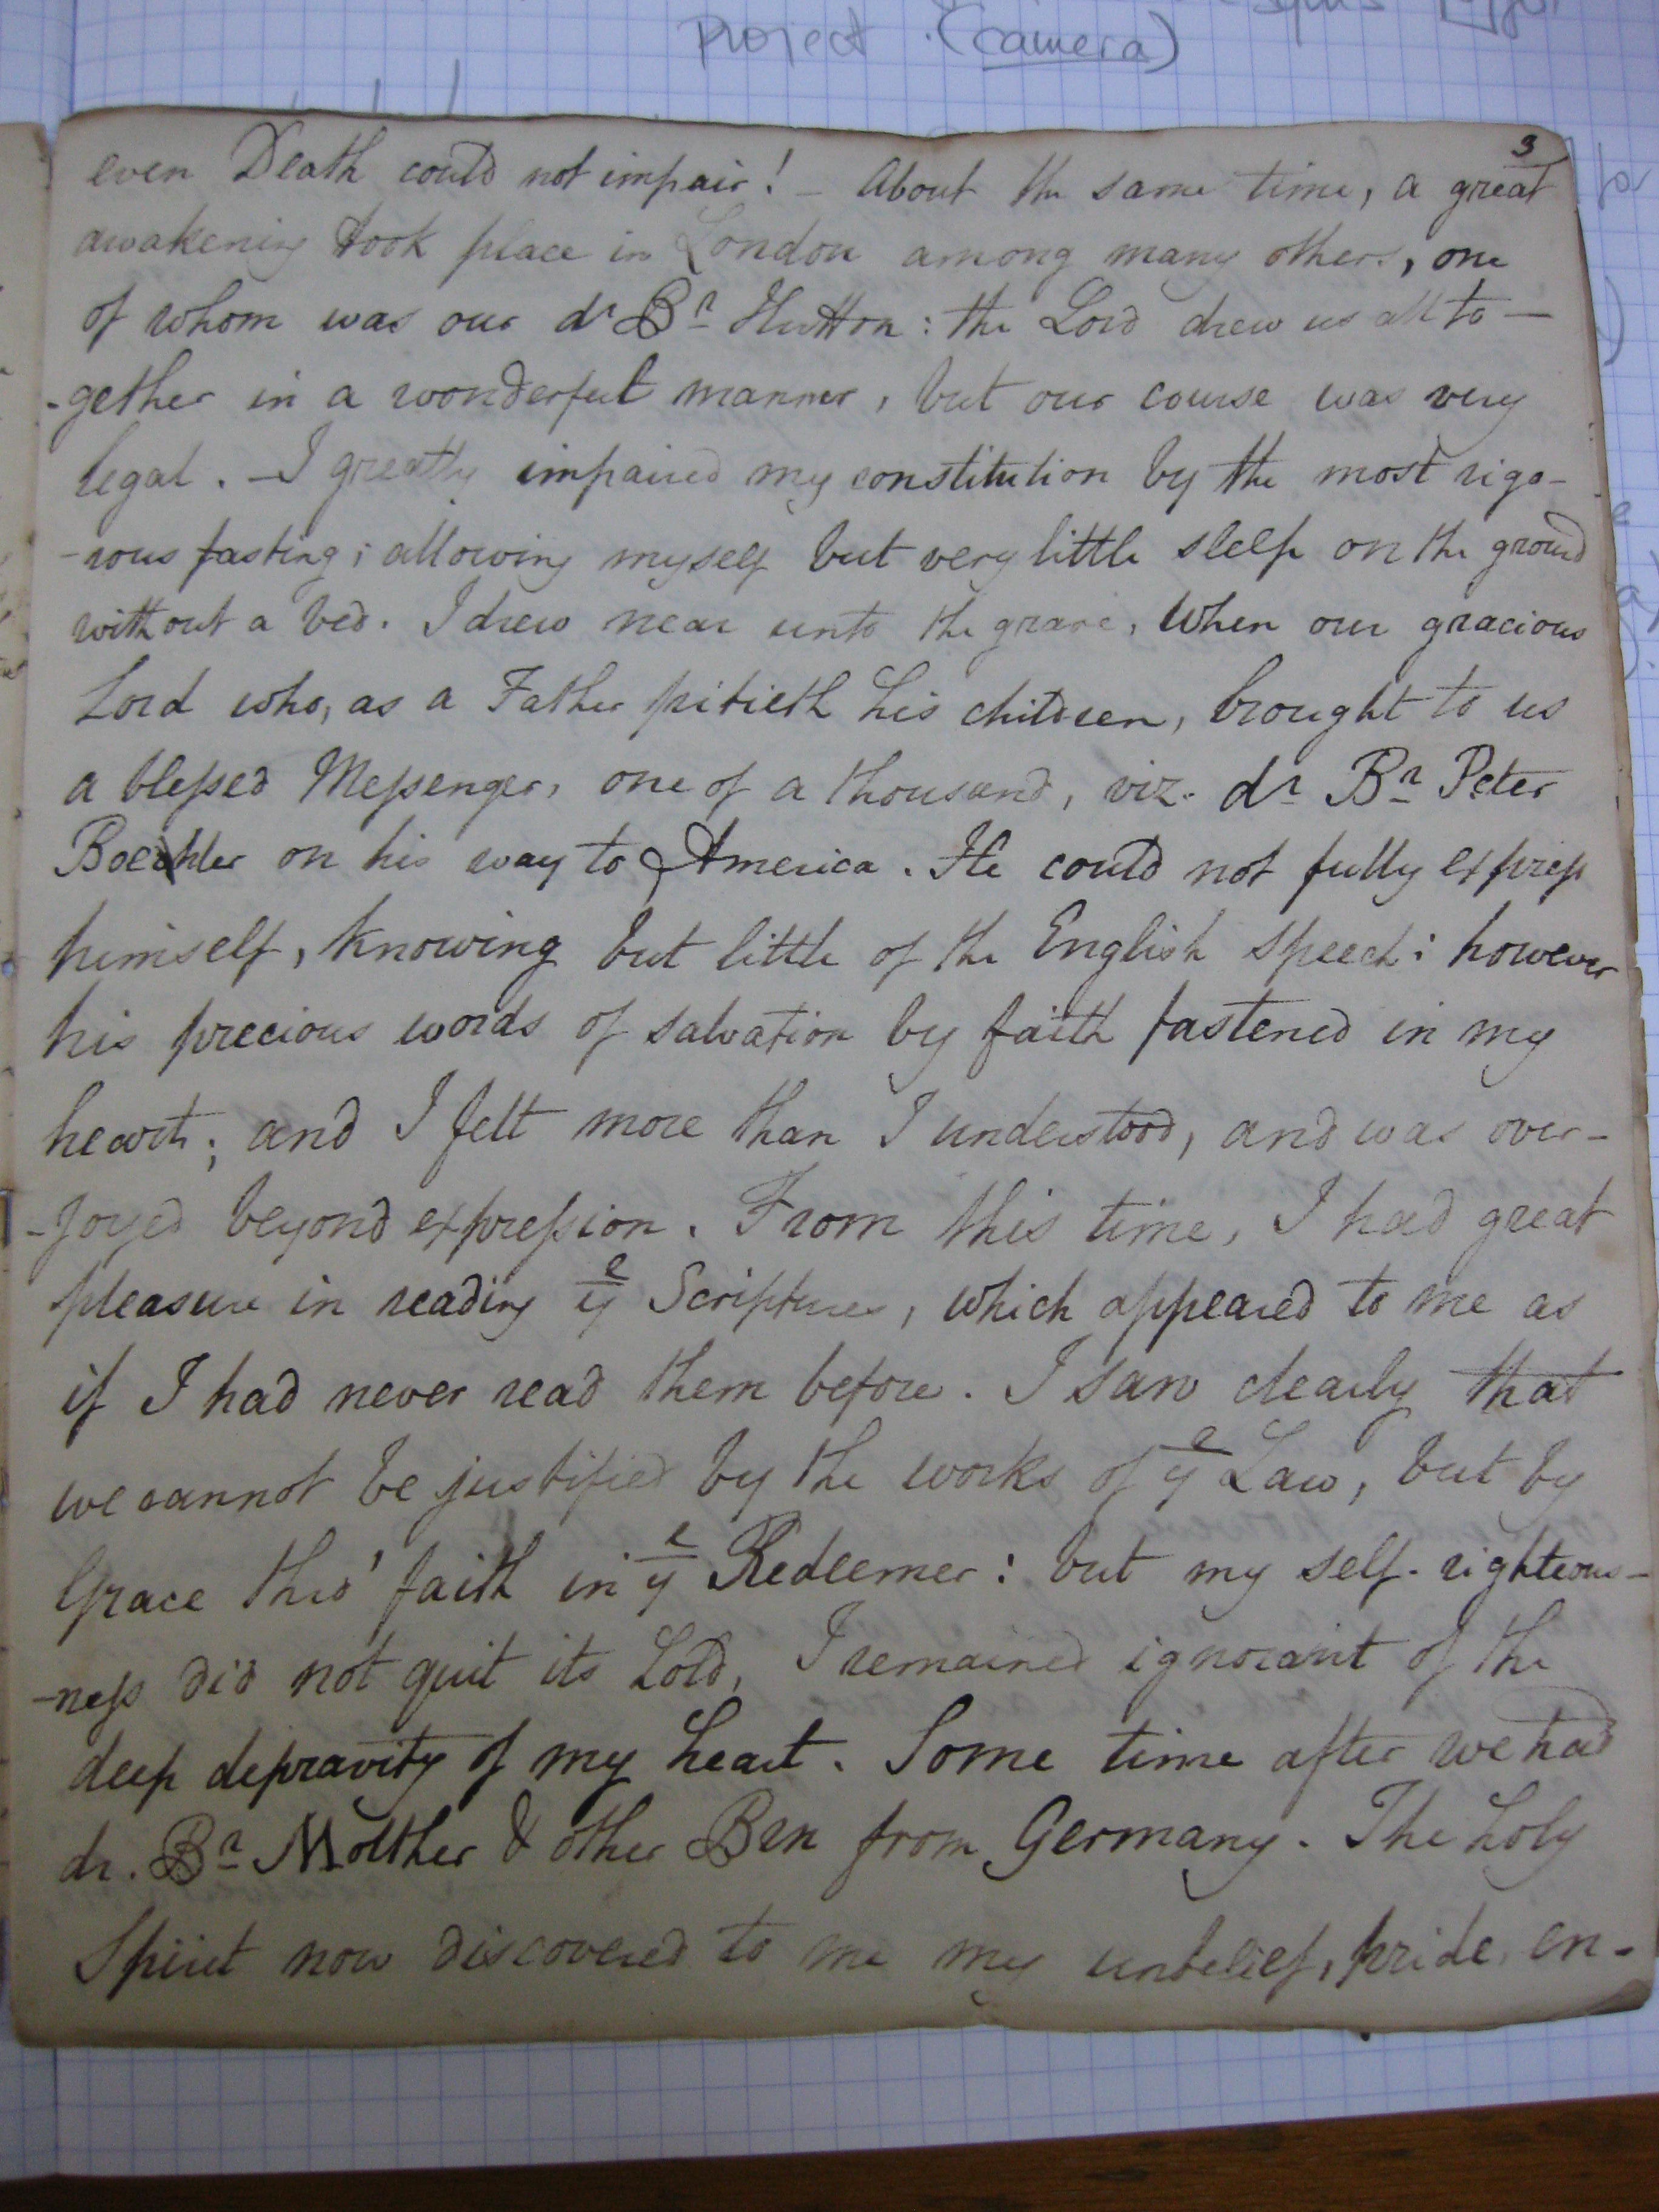 Project (camera)
3
even Death could not impair! – About the same time, a great
awakening took place in London among many others, one
of whom was our dr Br Hutton: the Lord drew us all to-
-gether in a wonderful manner, but our course was very
legal. – I greatly impaired my constitution by the most rigo-
-rous fasting; allowing myself but very little sleep on the ground
without a bed. I drew near unto the grave, when our gracious
Lord who, as a Father pitieth his children, brought to us
a blessed Messenger, one of a thousand, viz. dr Br Peter
Boehler on his way to America. He could not fully express
himself, knowing but little of the English speech: however
his precious words of salvation by faith fastened in my
heart; and I felt more than I understood, and was over-
-joyed beyond expression. From this time, I had great
pleasure in reading ye Scriptures, which appeared to me as
if I had never read them before. I saw clearly that
we cannot be justified by the works of ye Law, but by
Grace thro' faith in ye Redeemer: but my self-righteous-
-ness did not quit its hold, I remained ignorant of the
deep depravity of my heart. Some time after we had
dr. Br Molther & other Brn from Germany. The holy
Spirit now discovered to me my unbelief, pride, en-